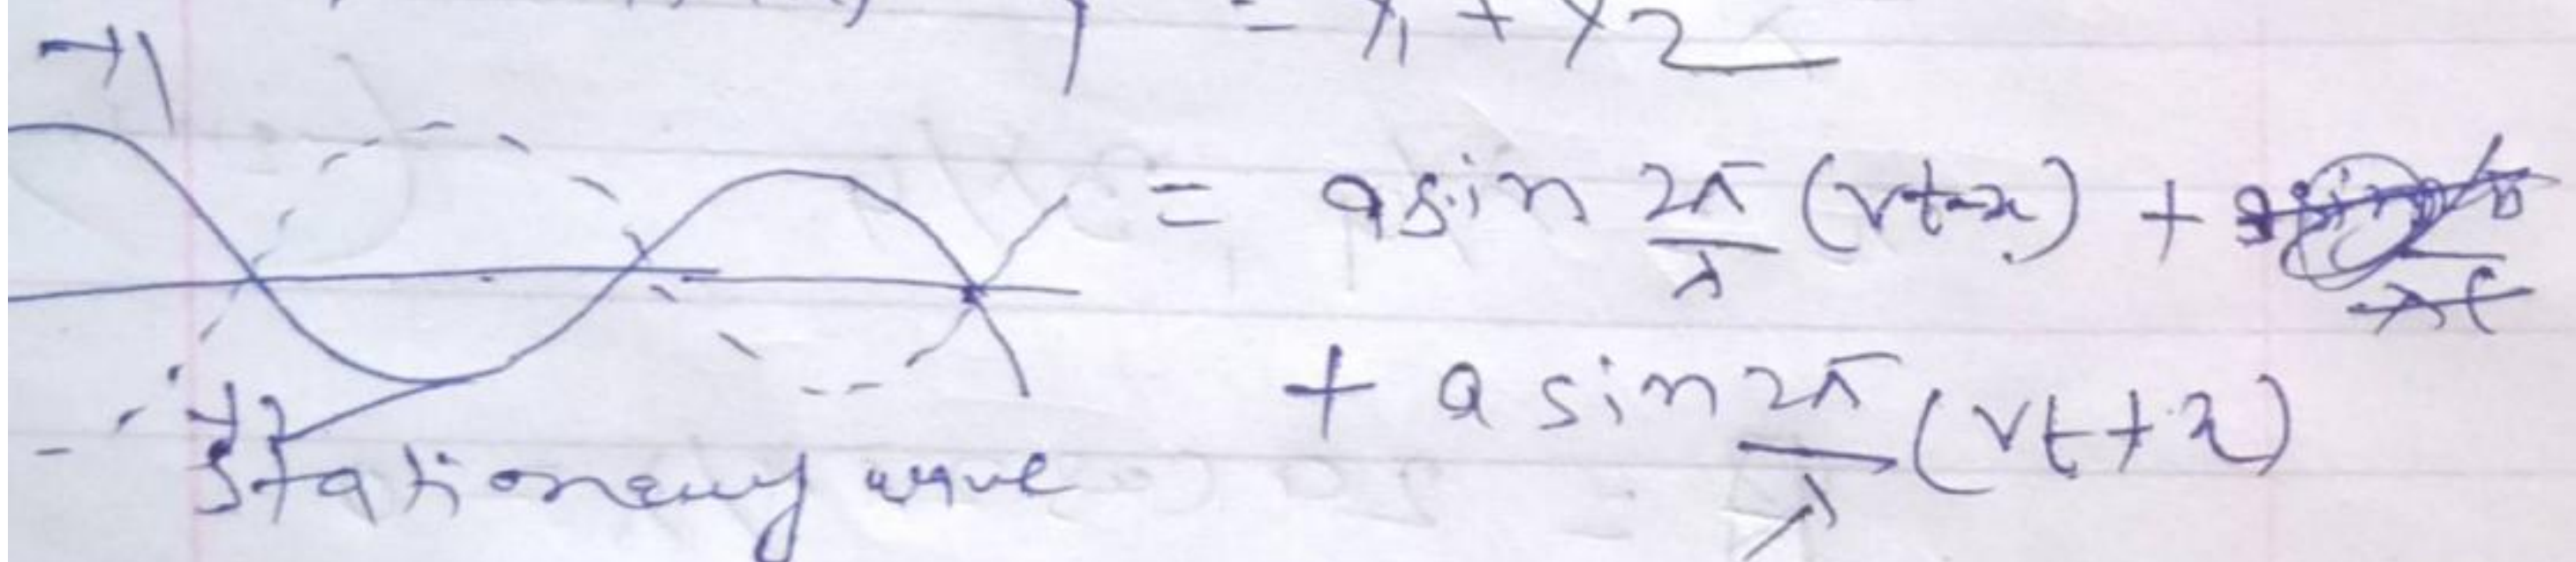 y = y₁ + y₂
y₁
= a sin 2π/λ (vt-x) +
+ a sin 2π/λ (vt+x)
y₂
Stationary wave